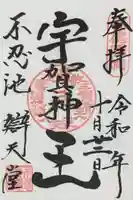 奉拝
令和二年
十月十三日
宇賀神王
不忍池
辯天堂